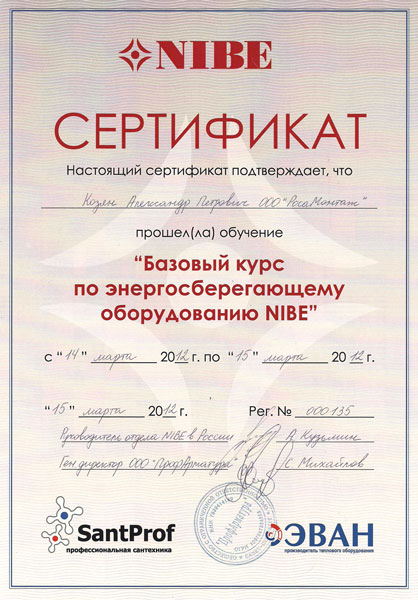 NIBE
СЕРТИФИКАТ
Настоящий сертификат подтверждает, что
Козян Александр Петрович ООО "РосаМонтаж"
прошел(ла) обучение
“Базовый курс
по энергосберегающему
оборудованию NIBE”
с “14” марта 2012 г. по “15” марта 2012 г.
“15” марта 2012 г. Рег. № 000135
Руководитель отдела NIBE в России А Кузьмин
Ген директор ООО "ПрофАрматура" С Михайлов
SantProf
профессиональная сантехника
ЭВАН
производитель теплового оборудования